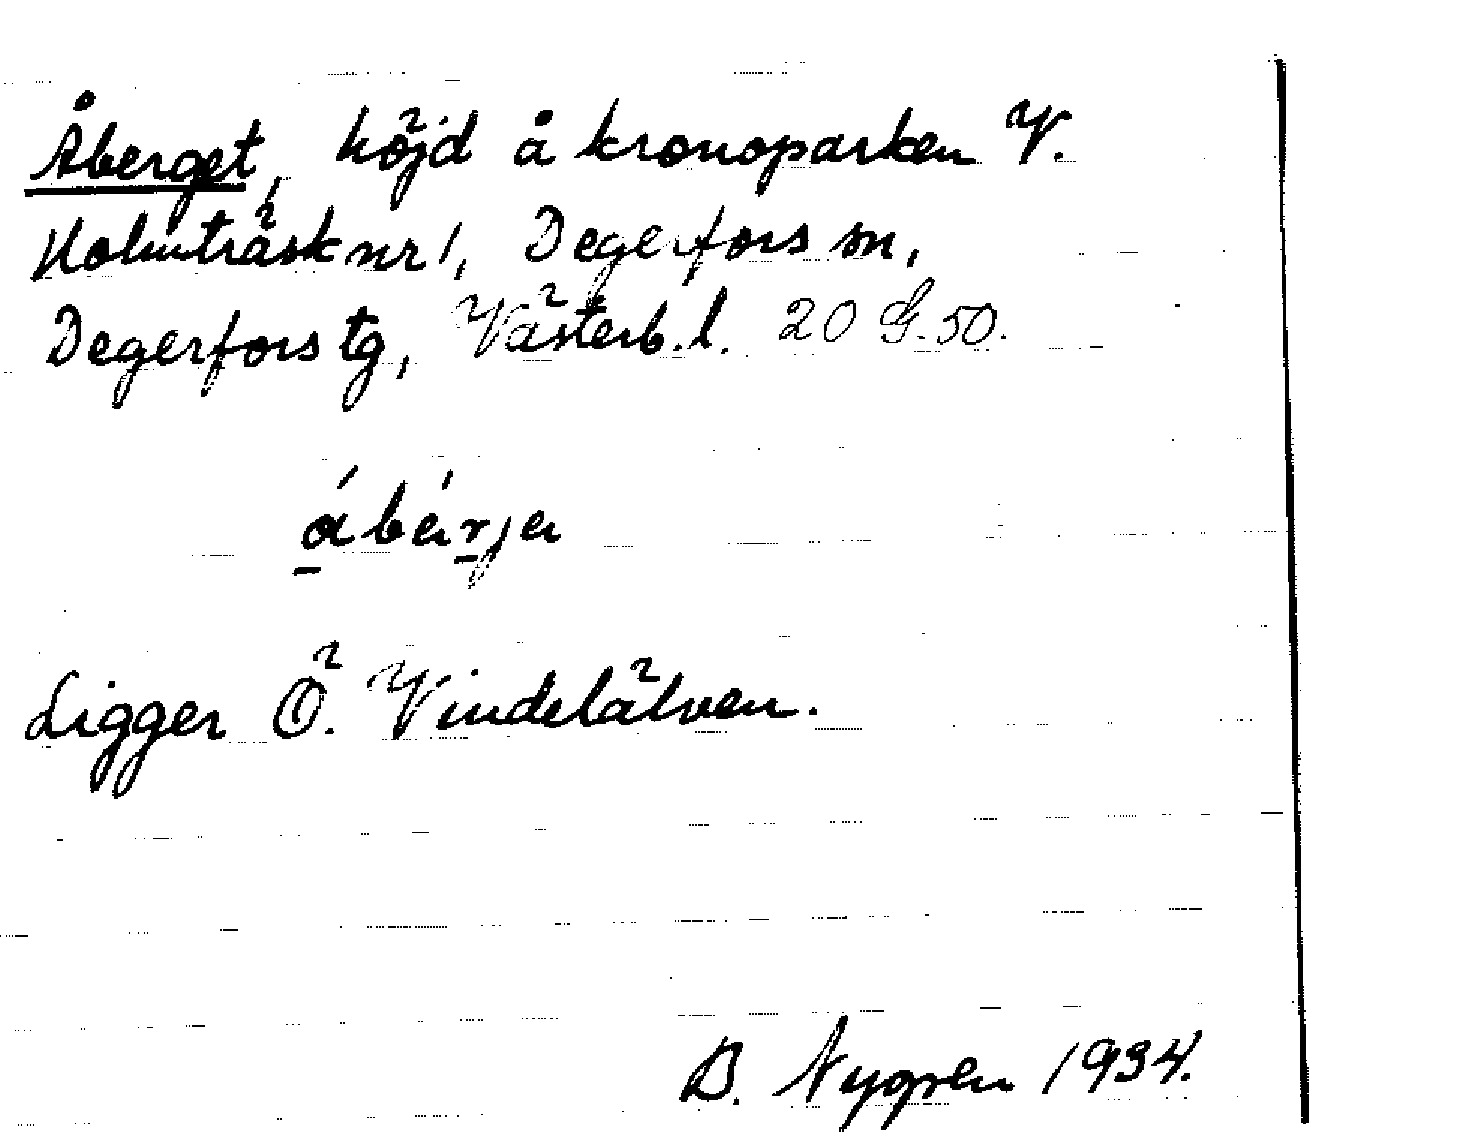 Åberget, höjd å kronoparken V.
Holmträsk nr 1, Degerfors sn,
Degerfors tg, Västerb. l. 20 G. 50.
ábárja
Ligger Ö. Vindelälven.
B. Nygren 1934.